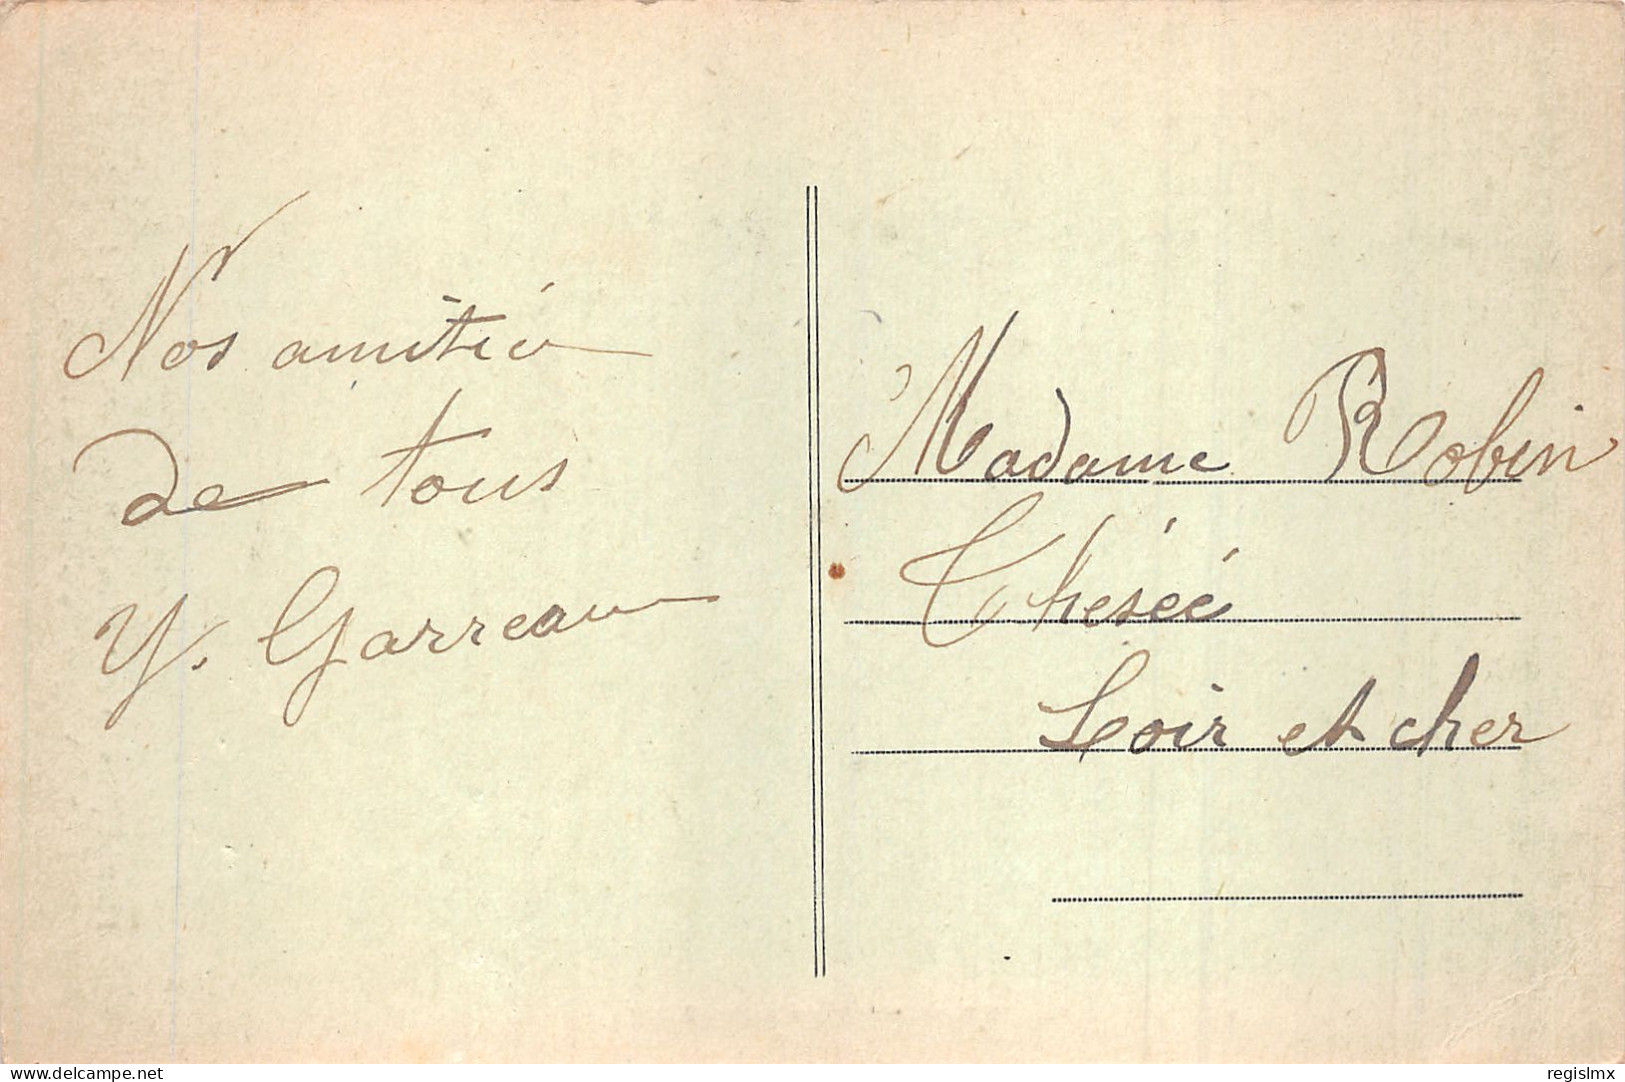 Nos amitiés
de tous
Y. Garreau
Madame Robin
Thésée
Loir et cher
delcampe.net
regislmx